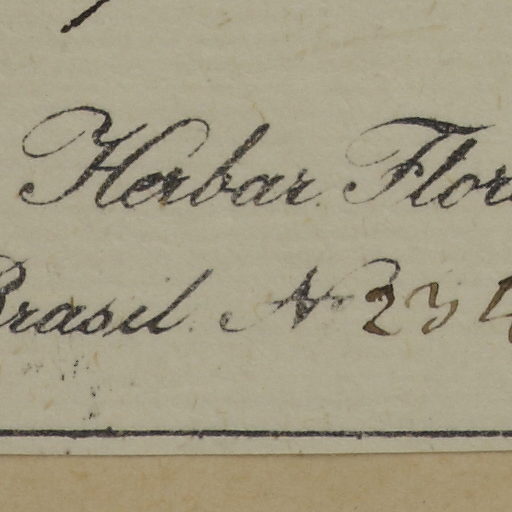 Herbar. Flor
Brasil. No 234